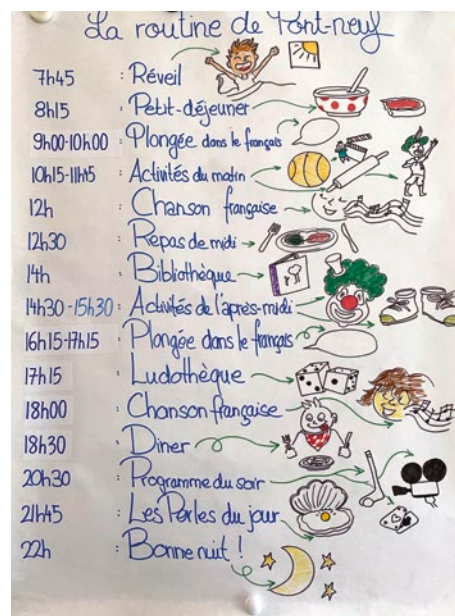 La routine de Pont-neuf
7h45 : Réveil
8h15 : Petit-déjeuner
9h00-10h00 : Plongée dans le français
10h15-11h15 : Activités du matin
12h : Chanson française
12h30 : Repas de midi
14h : Bibliothèque
14h30-15h30 : Activités de l'après-midi
16h15-17h15 : Plongée dans le français
17h15 : Ludothèque
18h00 : Chanson française
18h30 : Diner
20h30 : Programme du soir
21h45 : Les Perles du jour
22h : Bonne nuit !